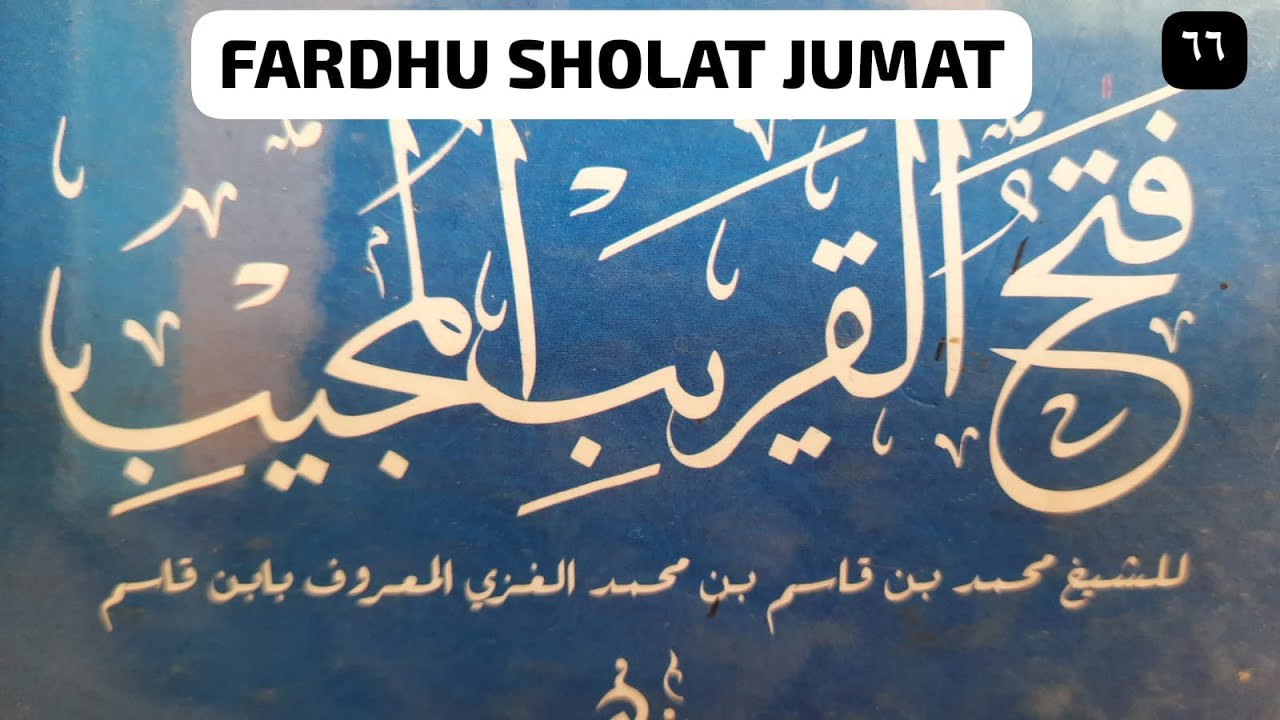 FARDHU SHOLAT JUMAT
٦٦
فَتْحُ الْقَرِيْبِ الْمُجِيْبِ
للشيخ محمد بن قاسم بن محمد الغزي المعروف بابن قاسم